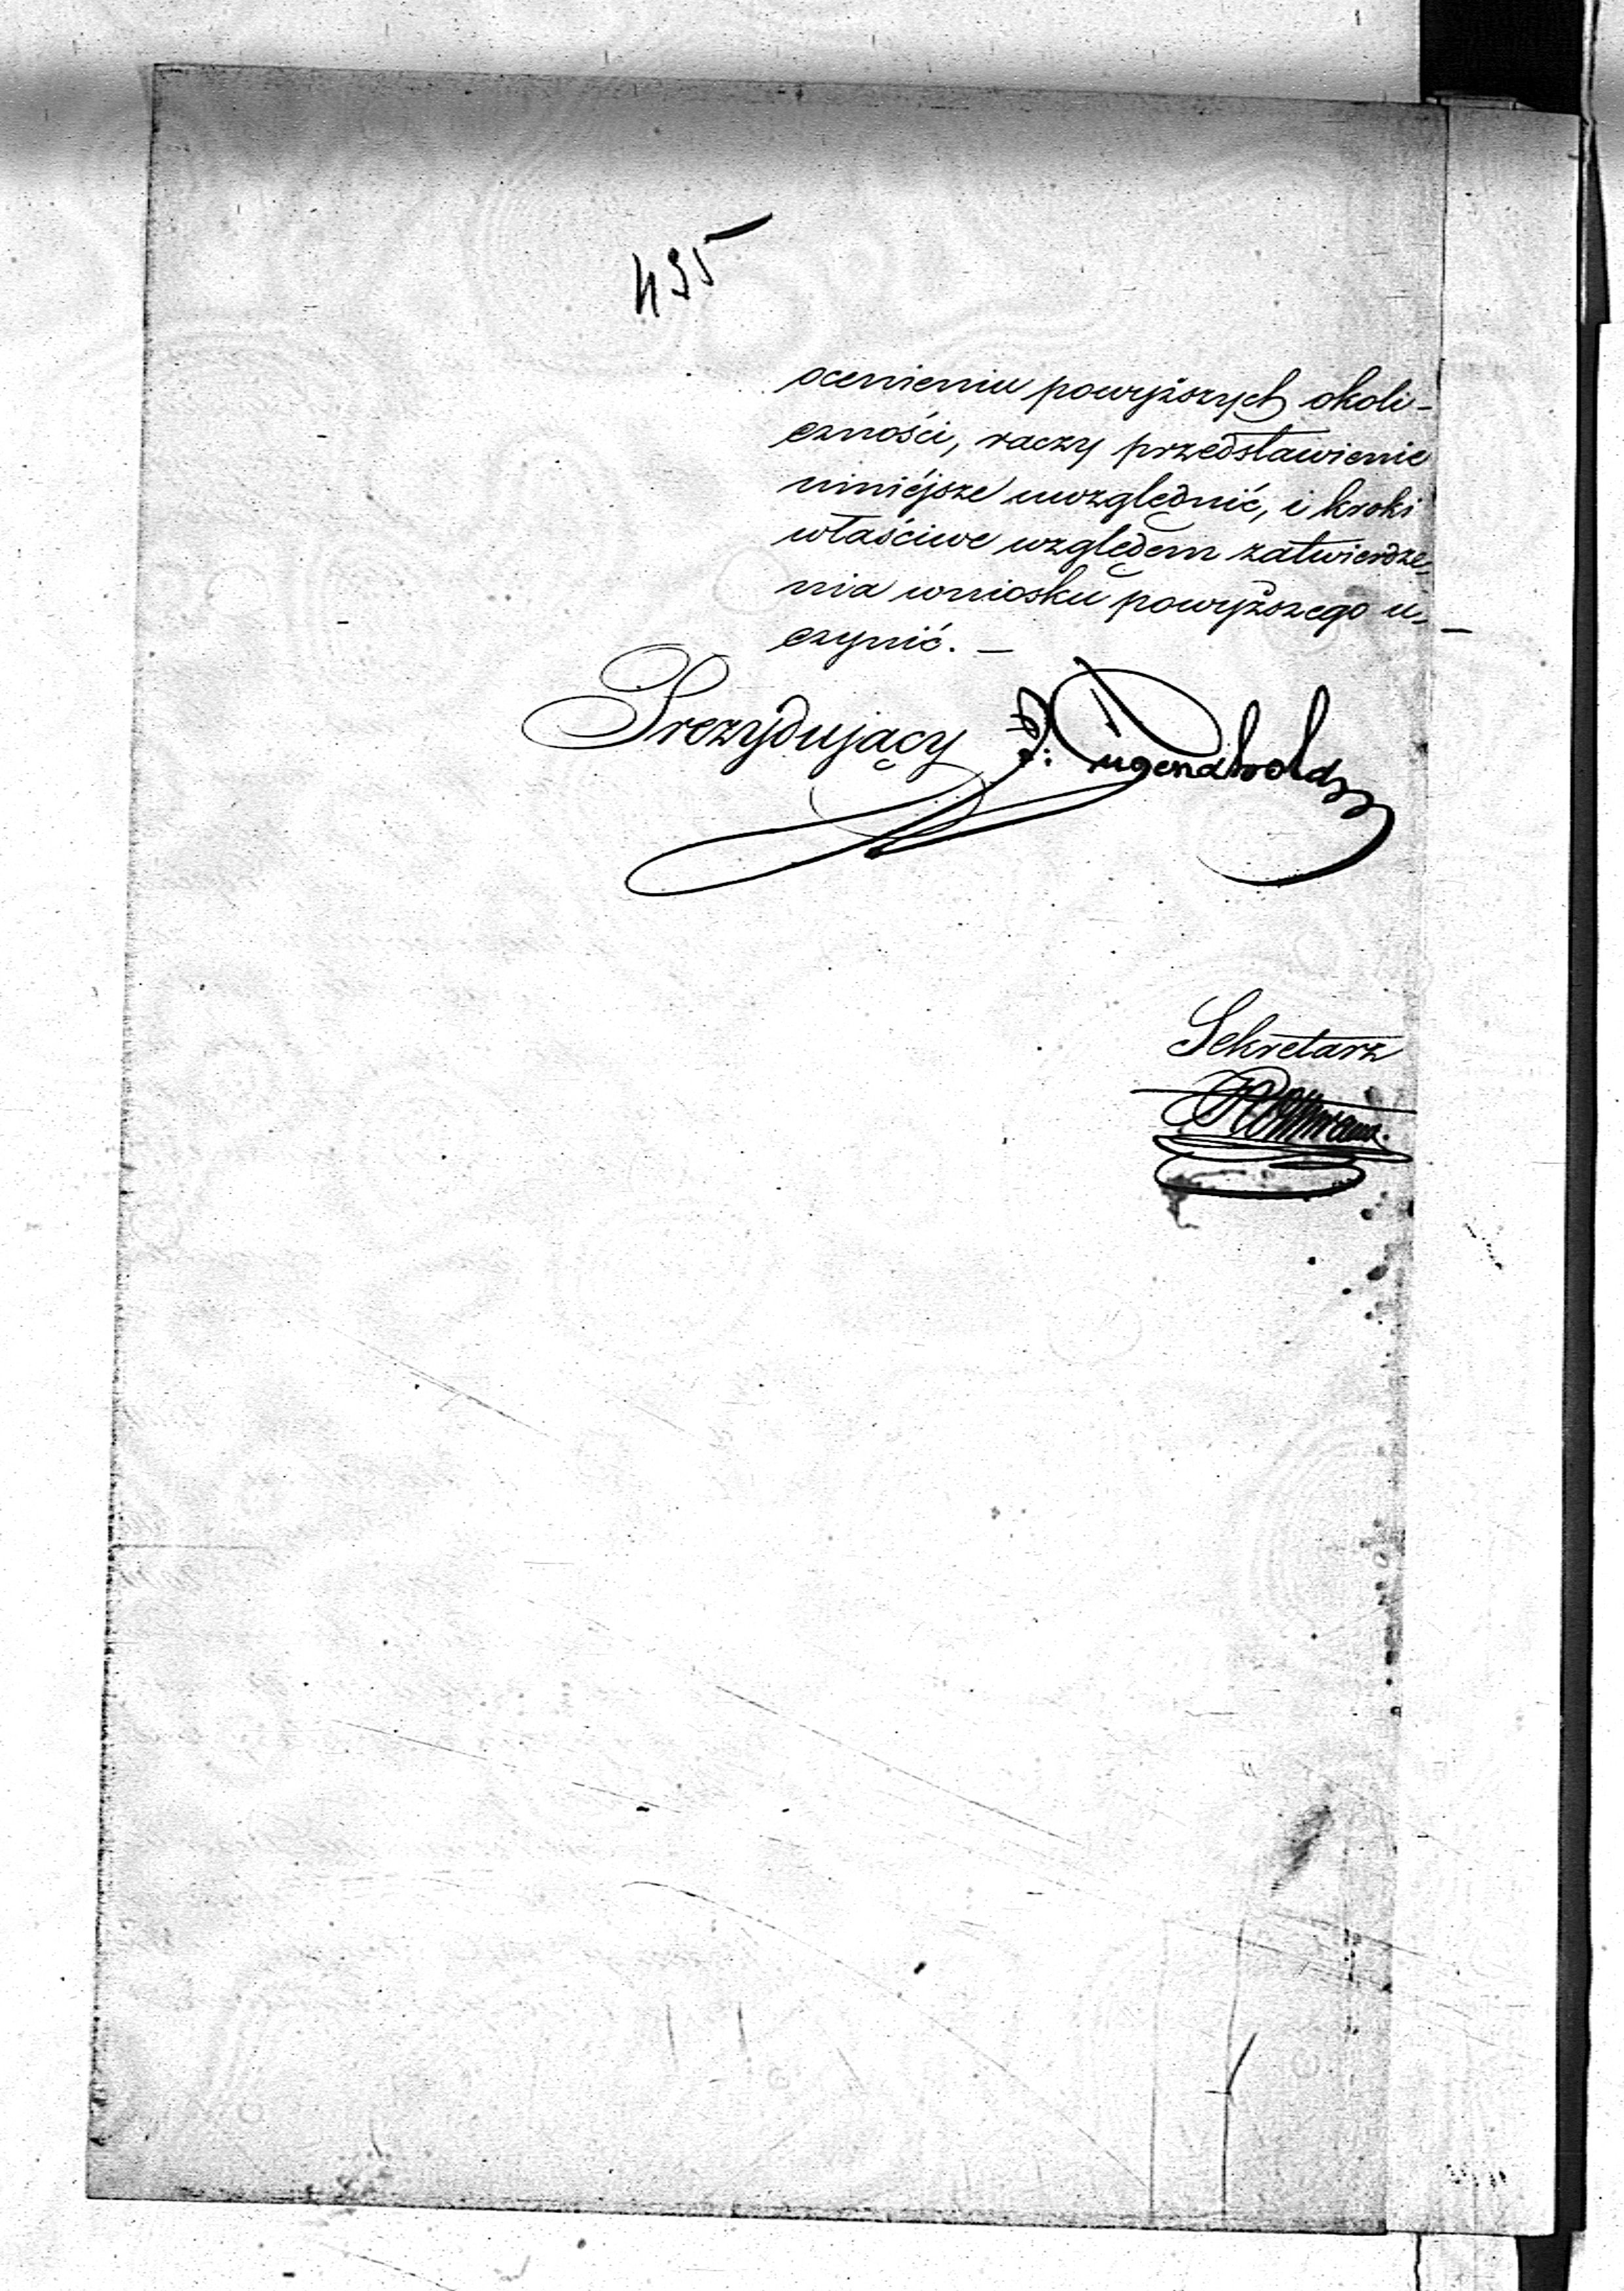 495
ocenieniu powyższych okoli-
czności, raczy przedstawienie
niniéjsze uwzględnić, i kroki
właściwe względem zatwierdze-
nia wniosku powyższego u-
czynić. —
Prezydujący
Sekretarz